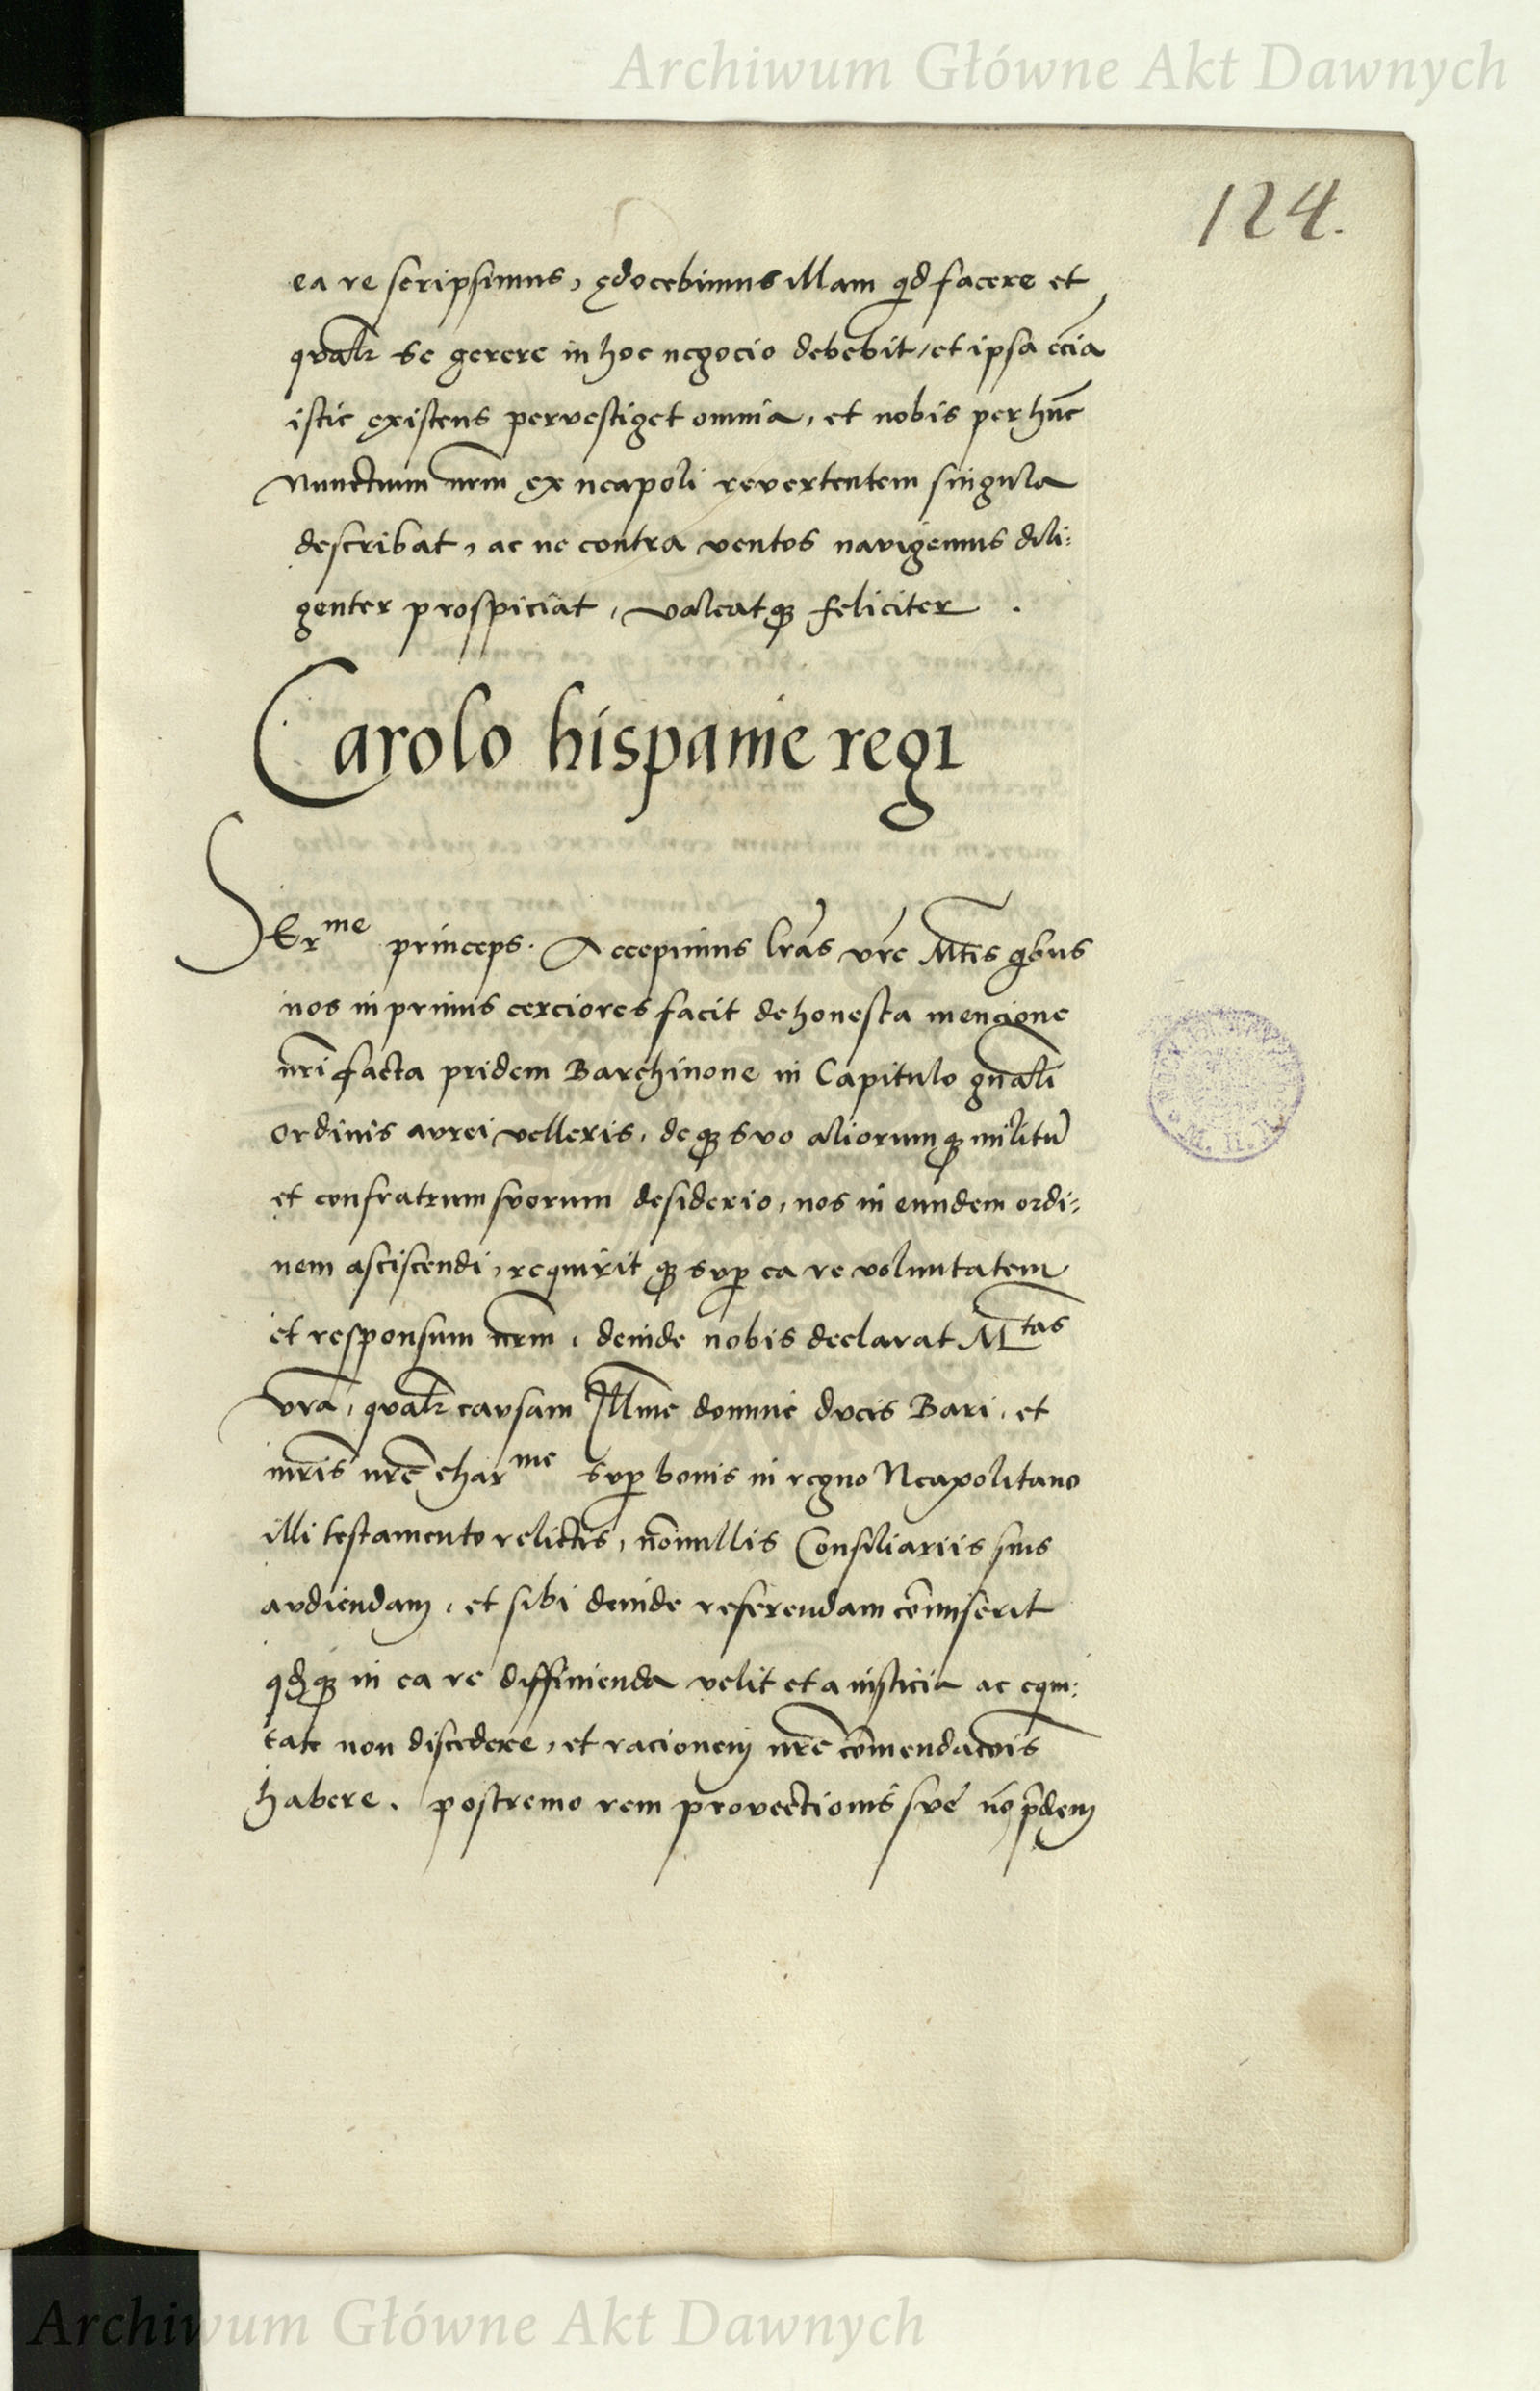 Archiwum Główne Akt Dawnych
124.
ea re scripsimus, ędocebimus illam qd facere et
qualr se gerere in hoc negocio debebit, et ipsa ecia
istic ęxistens pervestiget omnia, et nobis per hūc
Nunctium nrm ęx neapoli revertentem singula
describat, ac ne contra ventos navigemus dili:
genter prospiciat, valeatq3 feliciter .
Carolo hispanie regi
SEr^me princeps. Accepimus lras vre Mtis qbus
nos in primis cerciores facit de honesta mencione
nri facta pridem Barchinone in Capitulo gnali
ordinis aurei velleris, deq3 suo aliorumq3 militū
et confratrum suorum desiderio, nos in eundem ordi:
nem asciscendi, requirit q3 sup ea re voluntatem
et responsum nrm, deinde nobis declarat M^tas
vra, qualr causam Illme domine ducis Bari, et
mris nre char^me sup bonis in regno Neapolitano
illi testamento relictis, nōnullis Consiliariis suis
audiendam, et sibi deinde referendam cōmiserit
qdq3 in ea re diffinienda velit et a iusticia ac equi:
tate non discedere, et racionem nre cōmendacois
habere. postremo rem provectionis sue nō pridem
Archiwum Główne Akt Dawnych